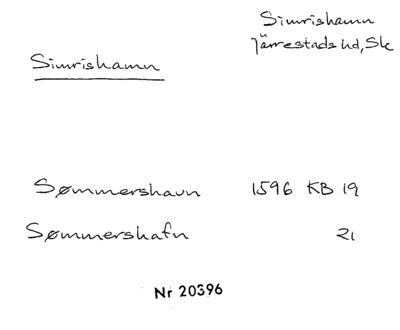 Simrishamn
Järrestads hd, Sk
Simrishamn
Sømmershavn 1596 KB 19
Sømmershafn 21
Nr 20396